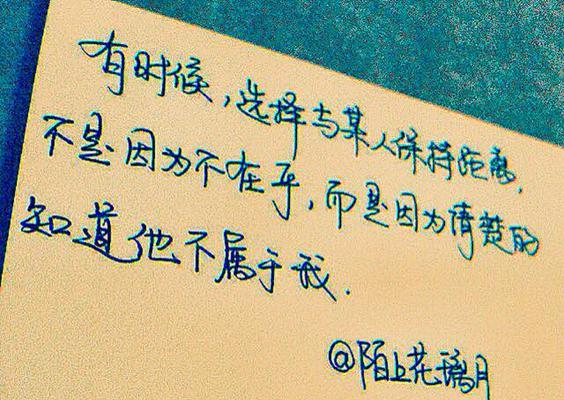 有时候，选择与某人保持距离，
不是因为不在乎，而是因为清楚的
知道他不属于我.
@陌上花璃月